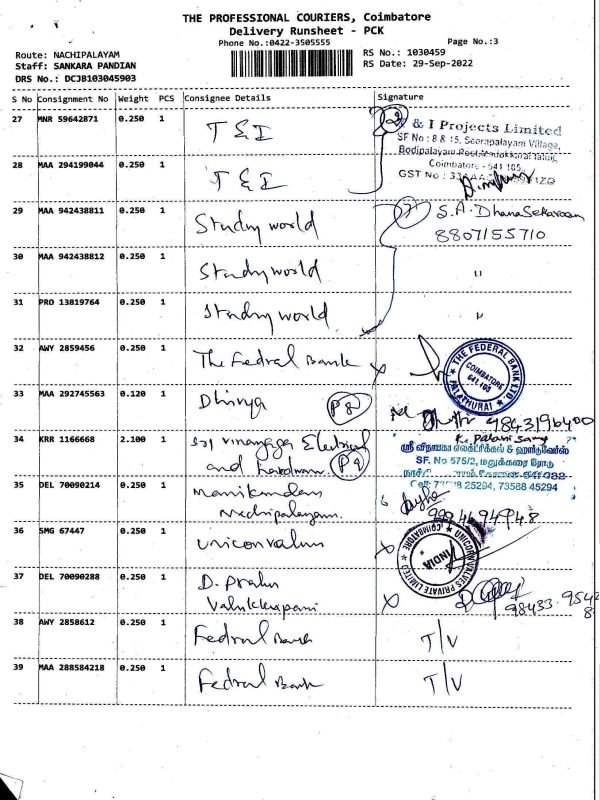 THE PROFESSIONAL COURIERS, Coimbatore
Delivery Runsheet - PCK
Phone No.:0422-3505555
Page No.:3
Route: NACHIPALAYAM
Staff: SANKARA PANDIAN
DRS No.: DCJB103045903
RS No.: 1030459
RS Date: 29-Sep-2022
S No Consignment No Weight PCS Consignee Details Signature
27 MNR 59642871 0.250 1 T & I
& I Projects Limited
SF No : 8 & 15, Seerapalayam Village,
Bodipalayam Post,
Coimbatore - 641 105
GST No : 33
28 MAA 294199044 0.250 1 T & I
29 MAA 942438811 0.250 1 Study world S.A. DhanaSekaran
8807155710
30 MAA 942438812 0.250 1 Study world "
31 PRO 13819764 0.250 1 Study world "
32 AWY 2859456 0.250 1 The Fedral Bank x
THE FEDERAL BANK LTD
COIMBATORE
641 105
PALATHURAI
33 MAA 292745563 0.120 1 Dhivya
9843196400
34 KRR 1166668 2.100 1 Sri Vinayaga Electrical
and hardware
K. Palani samy
ஸ்ரீ வீநாயகா எலக்ட்ரிக்கல் & ஹார்டுவேர்ஸ்
SF. No 575/2, மதுக்கரை ரோடு
Cell: 25294, 73588 45294
35 DEL 70090214 0.250 1 Manikandan
Nachipalayam
9994694948
36 SMG 67447 0.250 1 Uniconvalves x
COIMBATORE
INDIA
37 DEL 70090288 0.250 1 D. Prabu
Valukkuparai x
98433
38 AWY 2858612 0.250 1 Fedral Bank T/V
39 MAA 288584218 0.250 1 Fedral Bank T/V